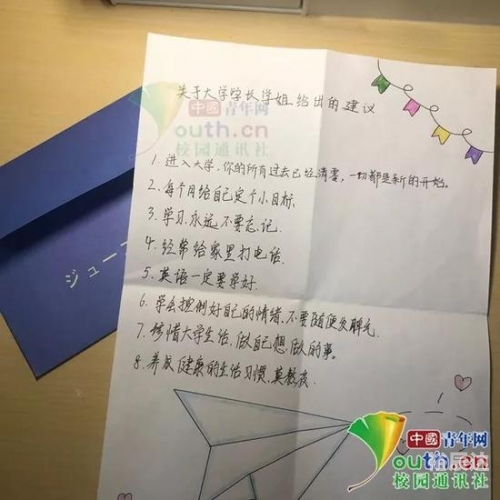 关于大学学长学姐给出的建议
中國青年网
outh.cn
校园通讯社
1. 进入大学，你的所有过去已经清零，一切都是新的开始。
2. 每个月给自己定个小目标.
3. 学习，永远不要忘记.
4. 经常给家里打电话.
5. 英语一定要学好.
6. 学会控制好自己的情绪，不要随便发脾气.
7. 珍惜大学生活，做自己想做的事。
8. 养成健康的生活习惯，莫熬夜.
ジュー
中國青年网
outh.cn
校园通讯社